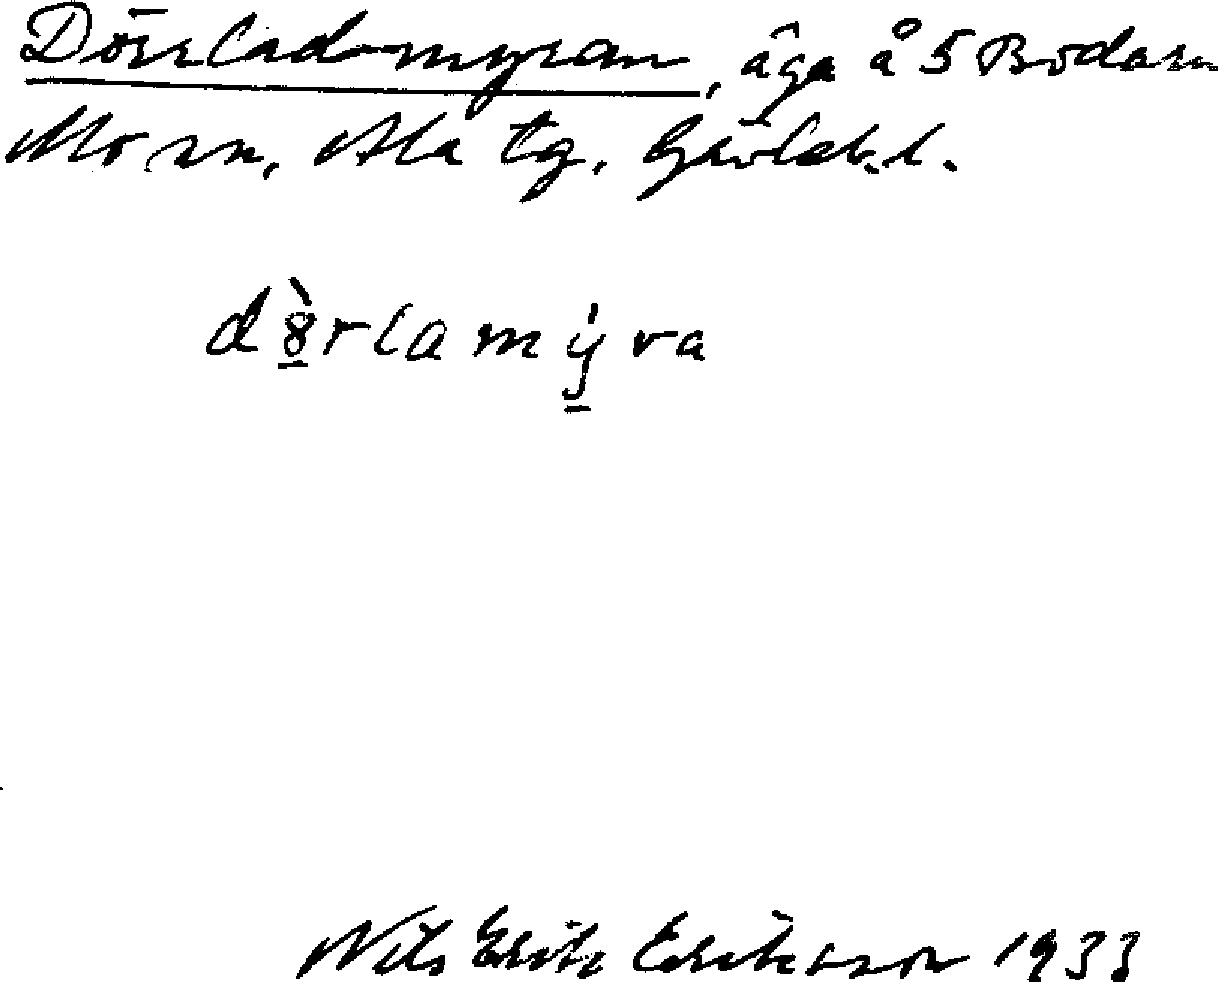 Dörrladmyran, äga å 5 Bodarn
Mo sn, Ala tg, Gävleb. l.
dȣ̀rlamýra
Nils Erik Eriksson 1933